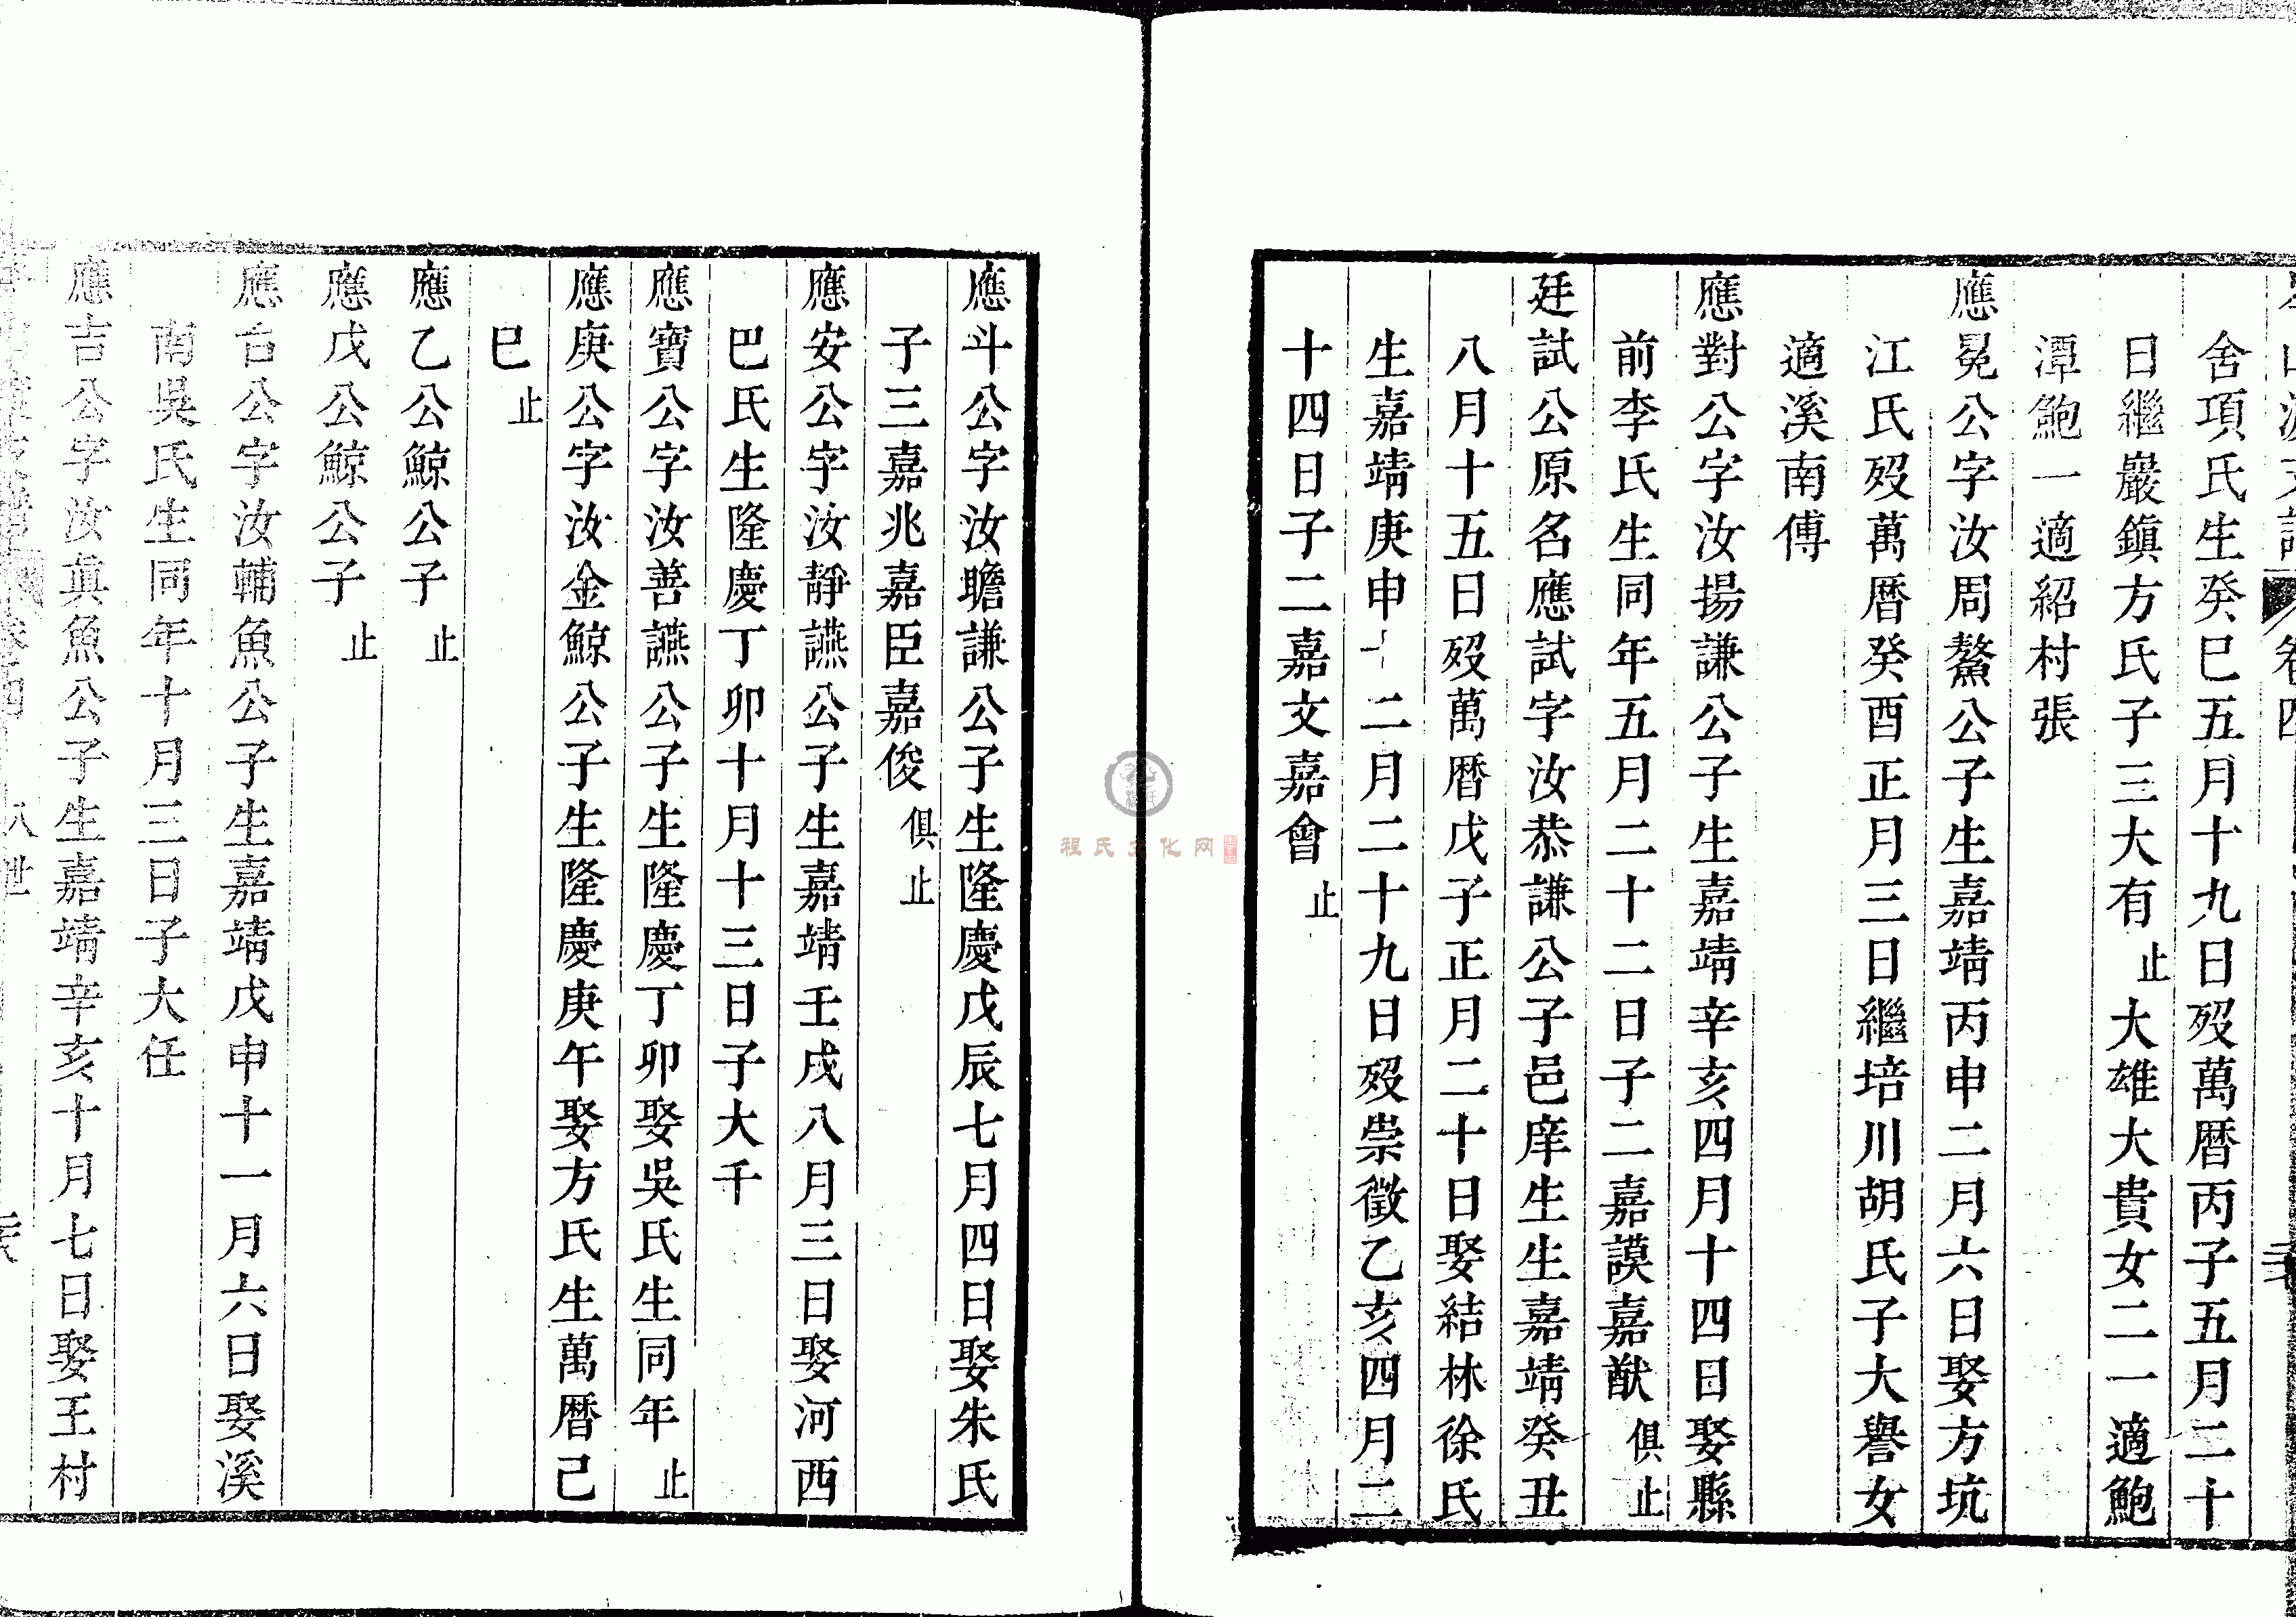 舍項氏生癸巳五月十九日歿萬曆丙子五月二十
日繼巖鎮方氏子三大有止大雄大貴女二一適鮑
潭鮑一適紹村張
應冕公字汝周鰲公子生嘉靖丙申二月六日娶方坑
江氏歿萬曆癸酉正月三日繼培川胡氏子大譽女
適溪南傅
應對公字汝揚謙公子生嘉靖辛亥四月十四日娶縣
前李氏生同年五月二十二日子二嘉謨嘉猷俱止
廷試公原名應試字汝恭謙公子邑庠生生嘉靖癸丑
八月十五日歿萬曆戊子正月二十日娶結林徐氏
生嘉靖庚申十二月二十九日歿崇徵乙亥四月二
十四日子二嘉文嘉會止
應斗公字汝瞻謙公子生隆慶戊辰七月四日娶朱氏
子三嘉兆嘉臣嘉俊俱止
應安公字汝靜讌公子生嘉靖壬戌八月三日娶河西
巴氏生隆慶丁卯十月十三日子大千
應寶公字汝善讌公子生隆慶丁卯娶吳氏生同年止
應庚公字汝金鯨公子生隆慶庚午娶方氏生萬曆己
巳止
應乙公鯨公子止
應戊公鯨公子止
應台公字汝輔魚公子生嘉靖戊申十一月六日娶溪
南吳氏生同年十月三日子大任
應吉公字汝真魚公子生嘉靖辛亥十月七日娶王村
程氏文化网